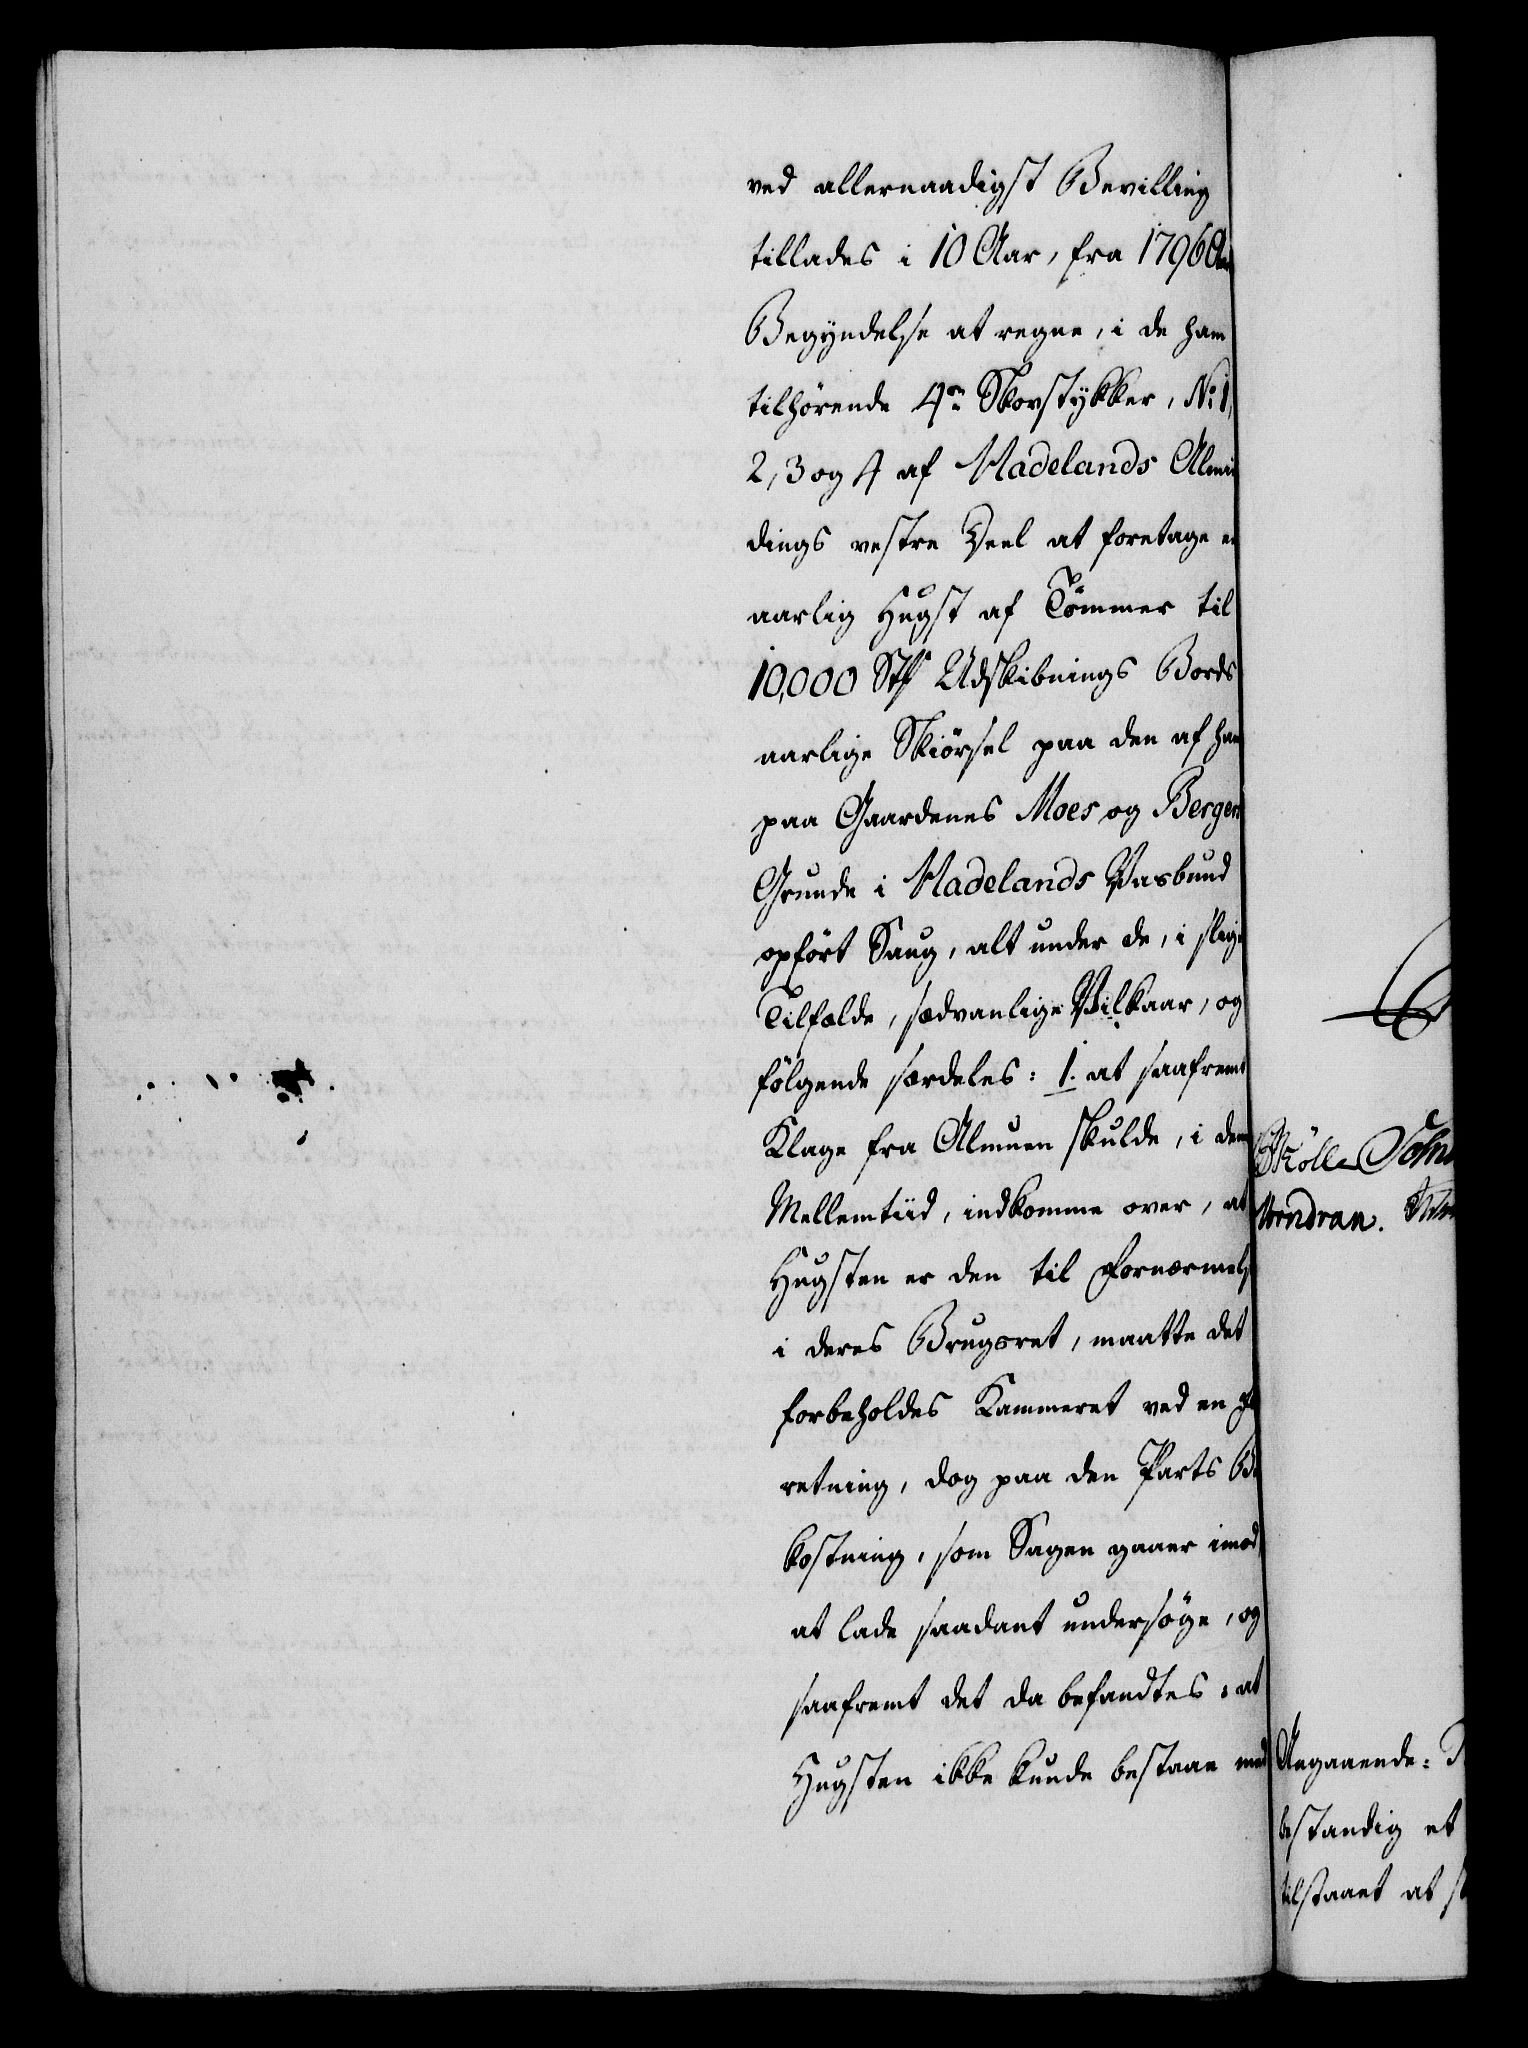 ved allernaadigst Bevilling
tillades i 10 Aar, fra 1796 Aar
Begyndelse at regne, i de ham
tilhørende 4re Skovstykker, No 1,
2, 3 og 4 af Hadelands Almin
dings vestre Deel at foretage en
aarlig Hugst af Tømmer til
10,000 Stk Udskibnings Bords
aarlige Skiørsel paa den af ham
paa Gaardenes Moes og Bergers
Grunde i Hadelands Vasbund
opført Saug, alt under de, i slige
Tilfælde, sædvanlige Vilkaar, og
følgende særdeles: 1. at saafremt
Klage fra Almuen skulde, i den
Mellemtiid, indkomme over, at
Hugsten er den til Fornærmelse
i deres Brugsret, maatte det
forbeholdes Kammeret ved en
retning, dog paa den Parts Be
kostning, som Sagen gaaer imod,
at lade saadant undersøge, og
saafremt det da befandtes, at
Hugsten ikke kunde bestaae med
Møller
Wendran.
Angaaende:
bestandig et
tilstaaet at